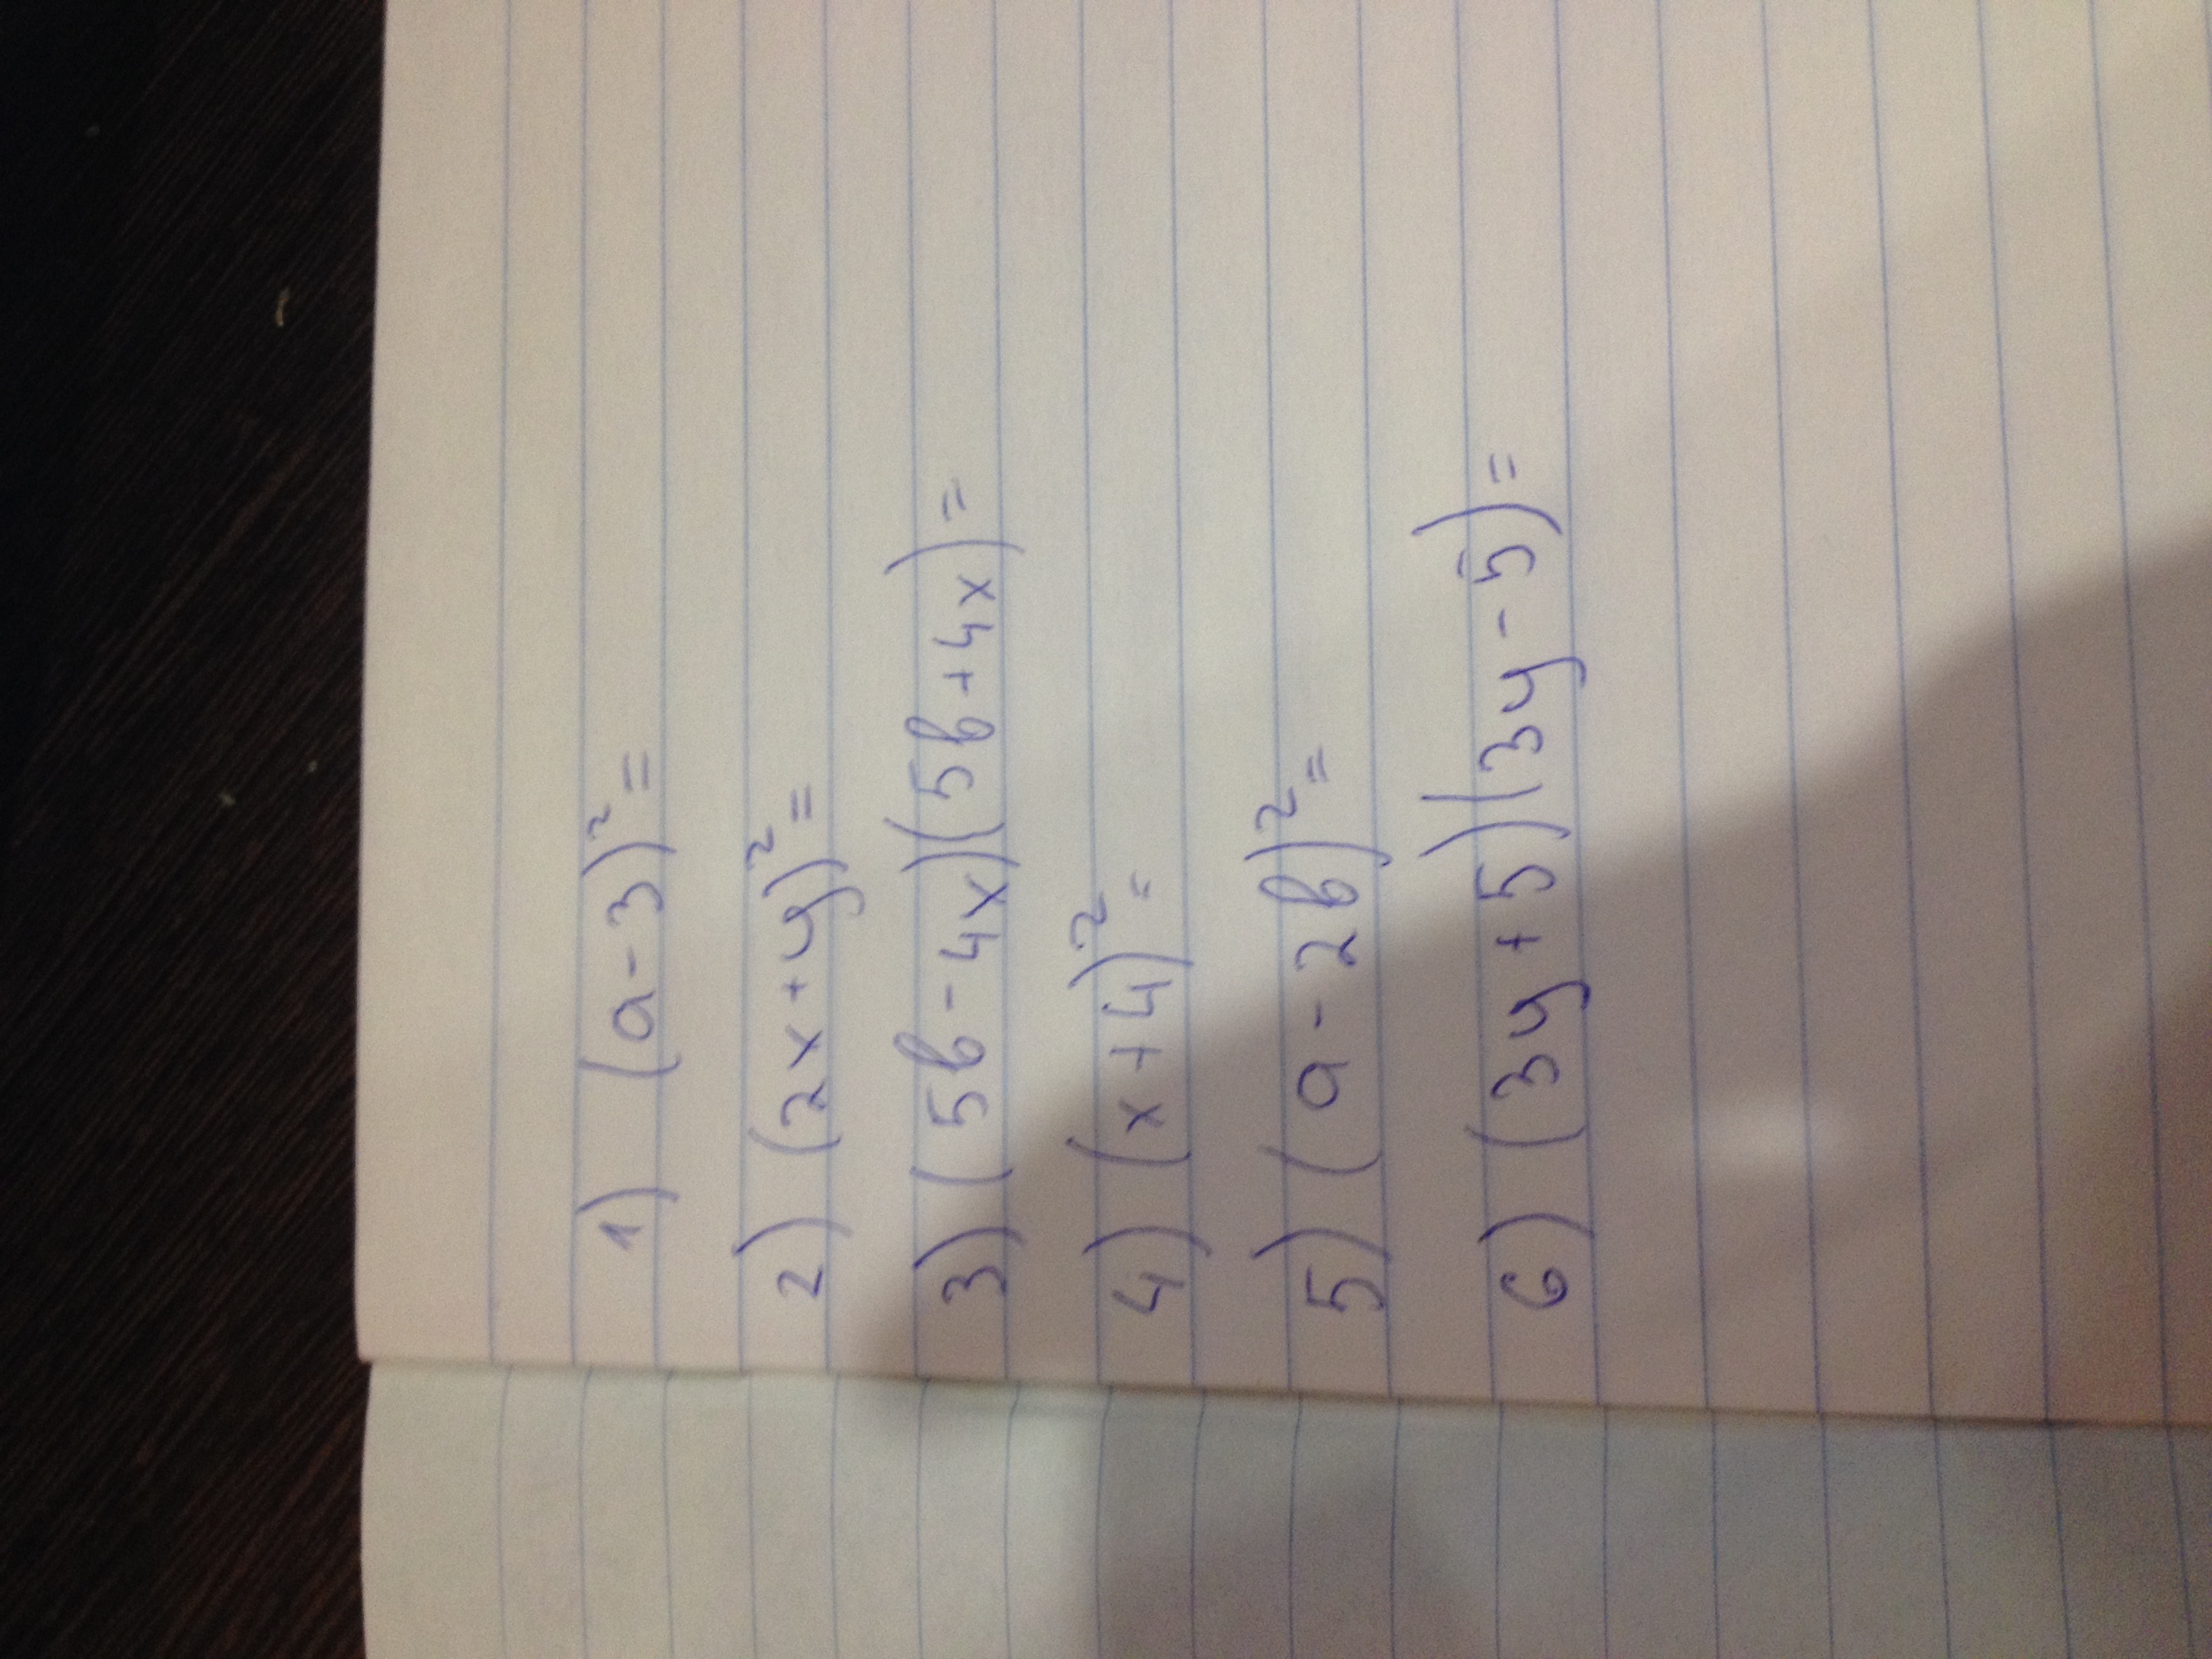 1) (a-3)²=
2) (2x+y)²=
3) (5b-4x)(5b+4x)=
4) (x+4)²=
5) (a-2b)²=
6) (3y+5)(3y-5)=